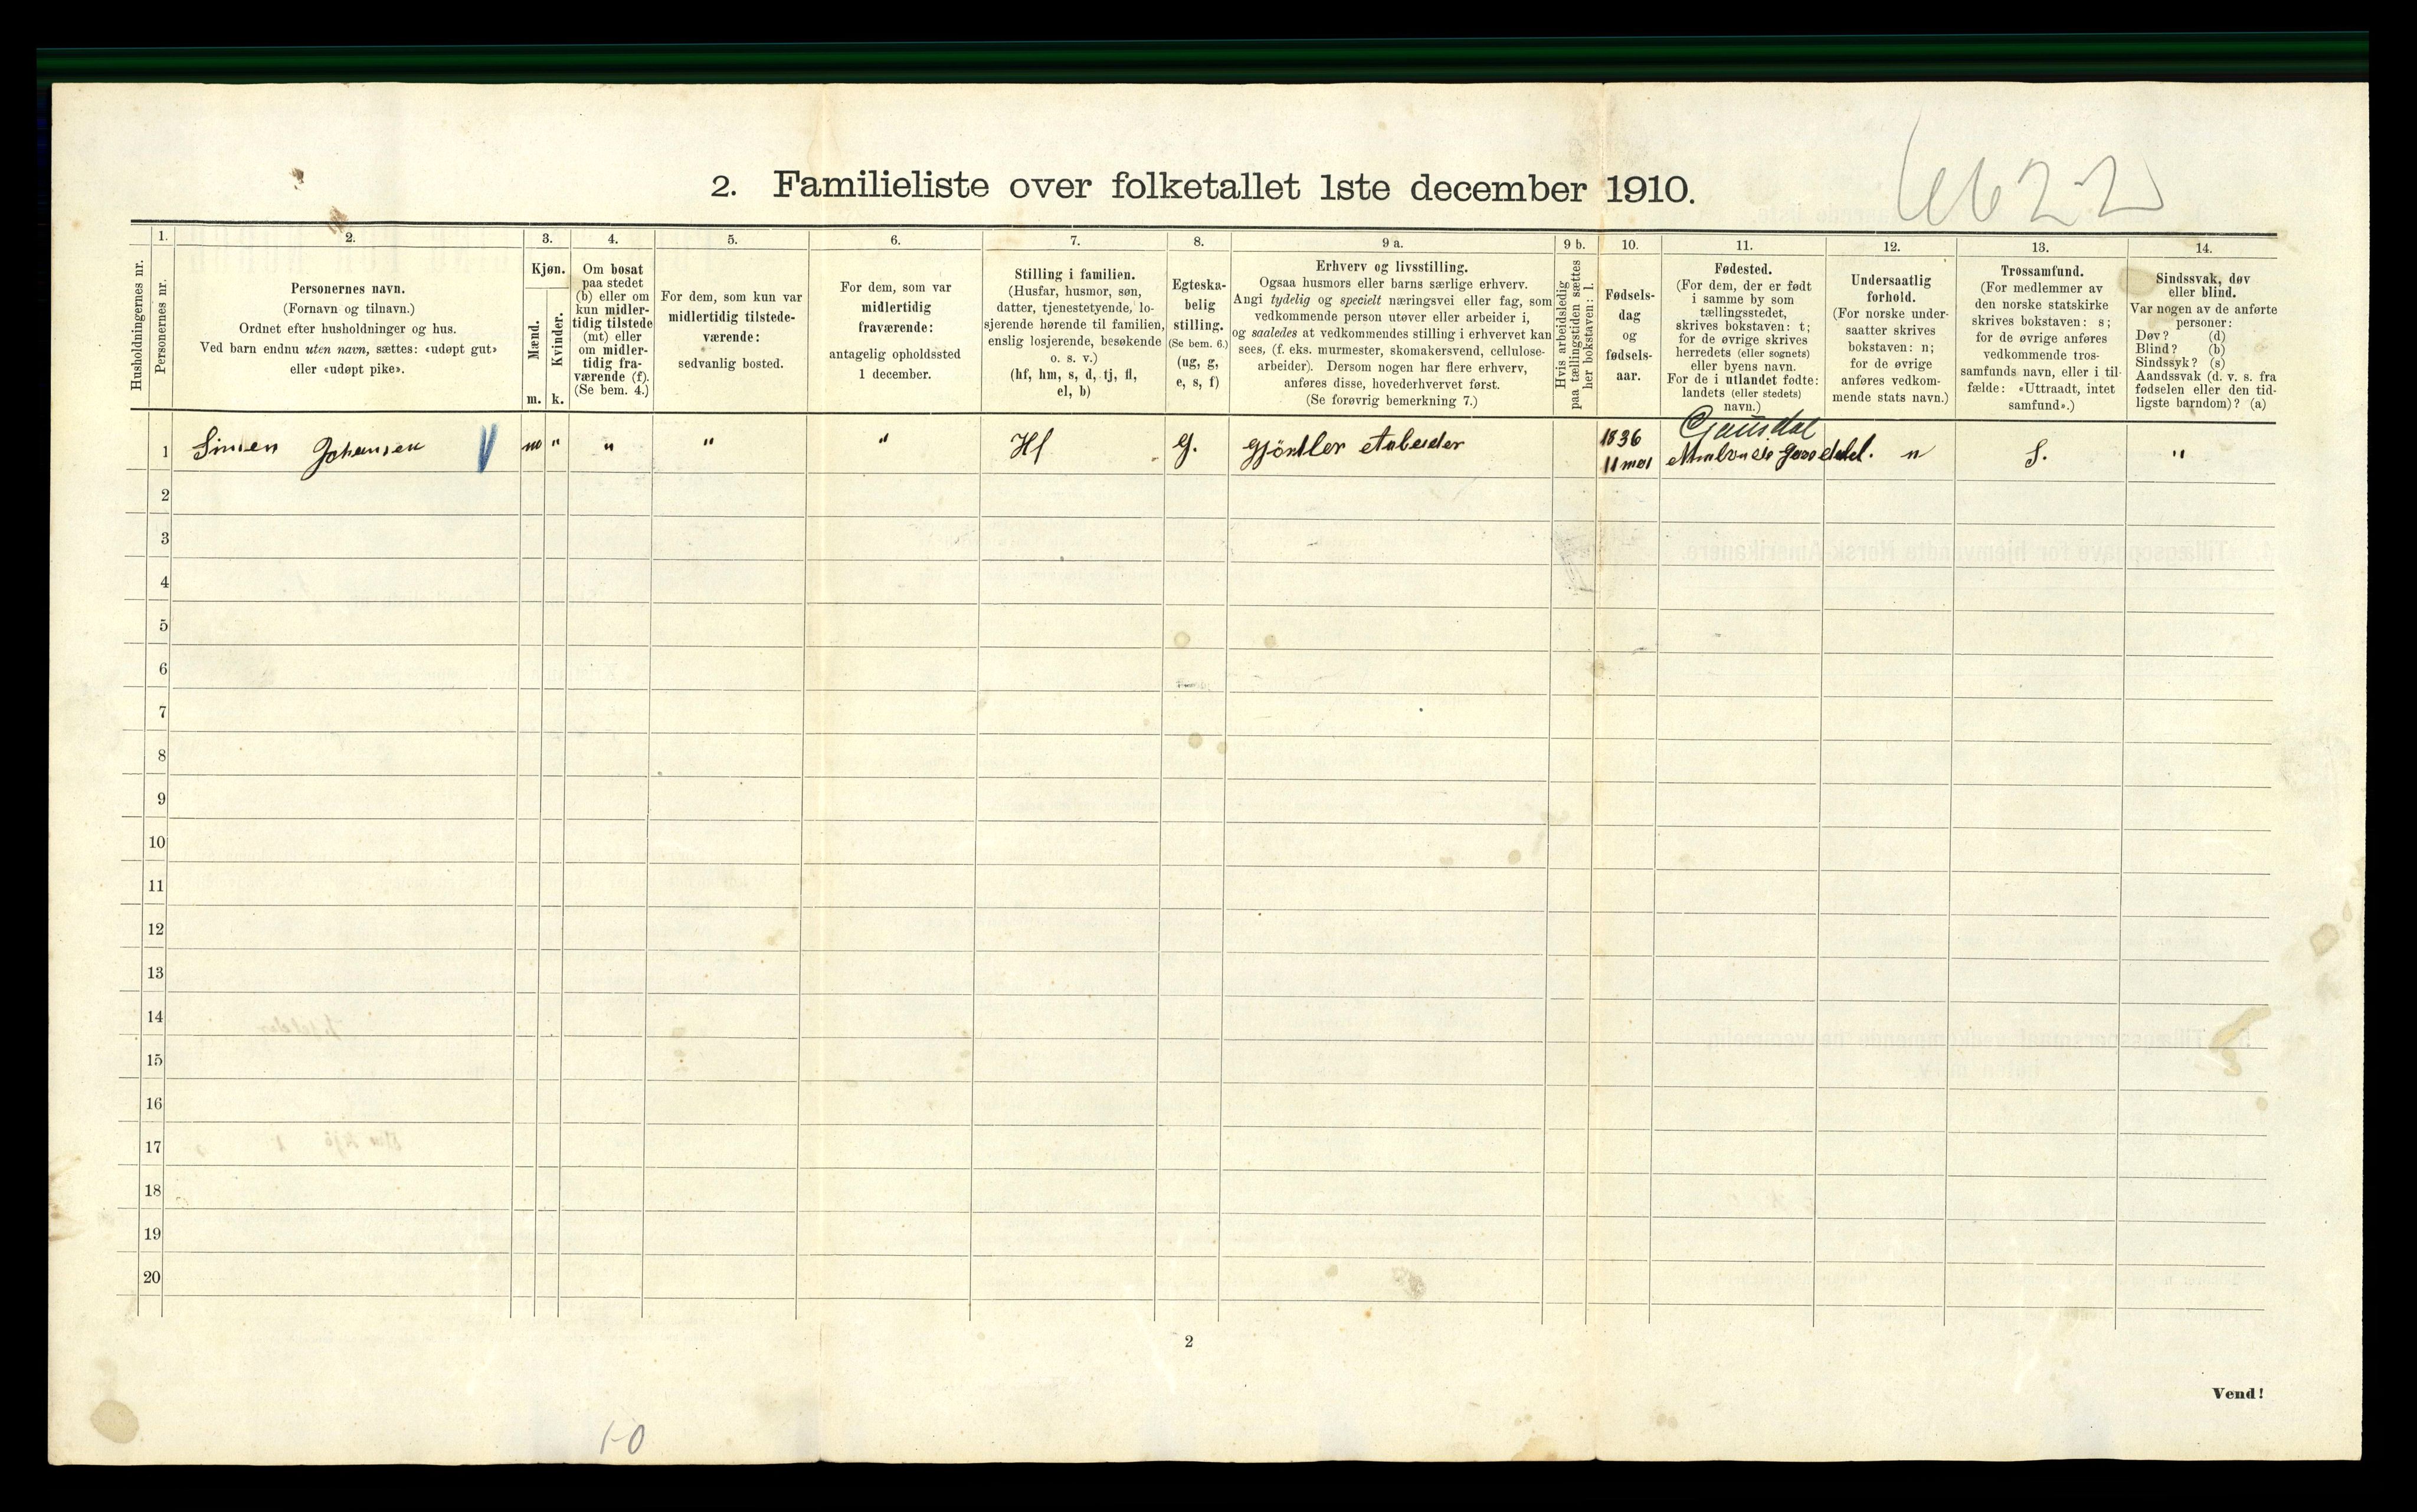 6622
2. Familieliste over folketallet 1ste december 1910.
Husholdningernes nr.
1.
Personernes nr.
2.
Personernes navn.
(Fornavn og tilnavn.)
Ordnet efter husholdninger og hus.
Ved barn endnu uten navn, sættes: «udøpt gut»
eller «udøpt pike».
3.
Kjøn.
Mænd.
m.
Kvinder.
k.
4.
Om bosat
paa stedet
(b) eller om
kun midler-
tidig tilstede
(mt) eller
om midler-
tidig fra-
værende (f).
(Se bem. 4.)
5.
For dem, som kun var
midlertidig tilstede-
værende:
sedvanlig bosted.
6.
For dem, som var
midlertidig
fraværende:
antagelig opholdssted
1 december.
7.
Stilling i familien.
(Husfar, husmor, søn,
datter, tjenestetyende, lo-
sjerende hørende til familien,
enslig losjerende, besøkende
o. s. v.)
(hf, hm, s, d, tj, fl,
el, b)
8.
Egteska-
belig
stilling.
(Se bem. 6.)
(ug, g,
e, s, f)
9 a.
Erhverv og livsstilling.
Ogsaa husmors eller barns særlige erhverv.
Angi tydelig og specielt næringsvei eller fag, som
vedkommende person utøver eller arbeider i,
og saaledes at vedkommendes stilling i erhvervet kan
sees, (f. eks. murmester, skomakersvend, cellulose-
arbeider). Dersom nogen har flere erhverv,
anføres disse, hovederhvervet først.
(Se forøvrig bemerkning 7.)
9 b.
Hvis arbeidsledig
paa tællingstiden sættes
her bokstaven: l.
10.
Fødsels-
dag
og
fødsels-
aar.
11.
Fødested.
(For dem, der er født
i samme by som
tællingsstedet,
skrives bokstaven: t;
for de øvrige skrives
herredets (eller sognets)
eller byens navn.
For de i utlandet fødte:
landets (eller stedets)
navn.)
12.
Undersaatlig
forhold.
(For norske under-
saatter skrives
bokstaven: n;
for de øvrige
anføres vedkom-
mende stats navn.)
13.
Trossamfund.
(For medlemmer av
den norske statskirke
skrives bokstaven: s;
for de øvrige anføres
vedkommende tros-
samfunds navn, eller i til-
fælde: «Uttraadt, intet
samfund».)
14.
Sindssvak, døv
eller blind.
Var nogen av de anførte
personer:
Døv? (d)
Blind? (b)
Sindssyk? (s)
Aandssvak (d. v. s. fra
fødselen eller den tid-
ligste barndom)? (a)
Gausdal
1 Simen Johansen m " " " " Hf G. Gjörtler Arbeider 1836 11 mai n S. "
2
3
4
5
6
7
8
9
10
11
12
13
14
15
16
17
18
19
20
2
Vend!
1-0